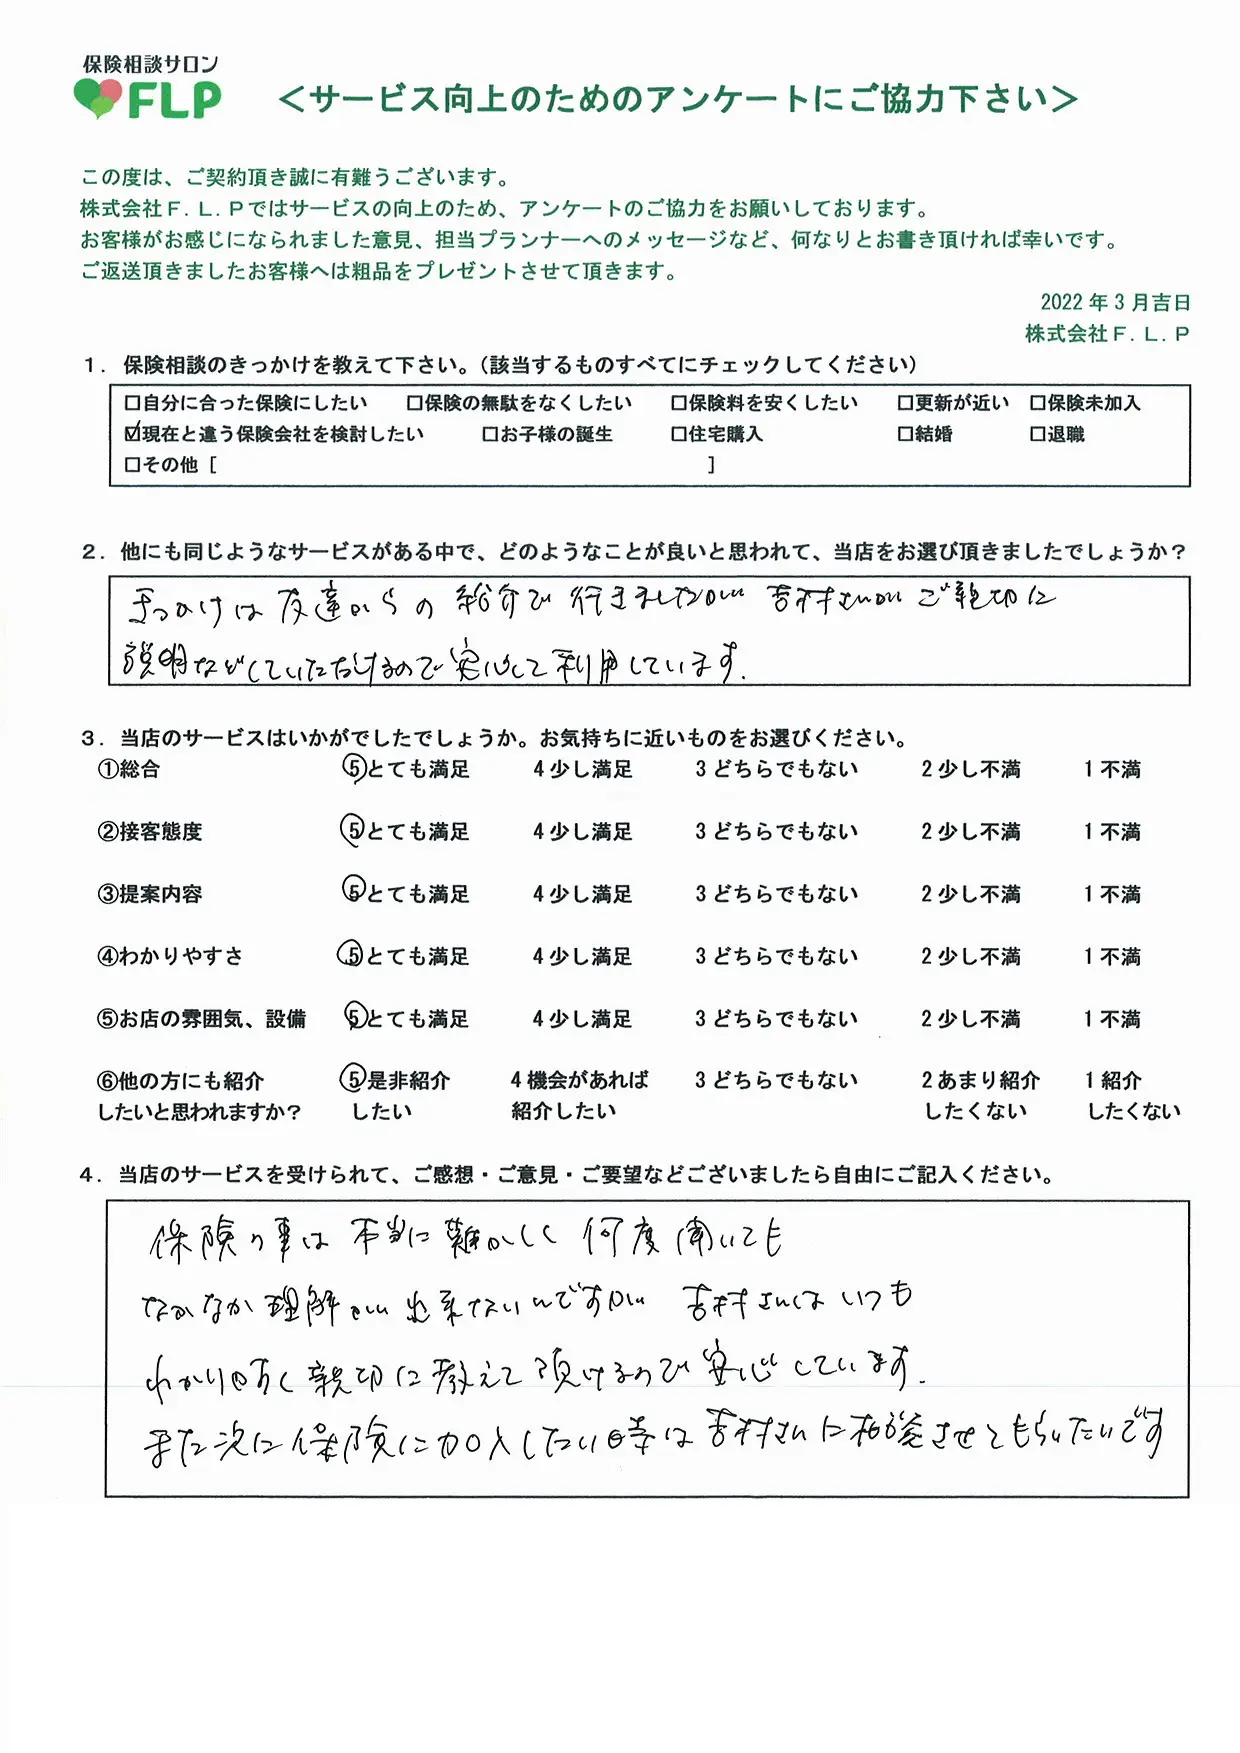 保険相談サロン
FLP
＜サービス向上のためのアンケートにご協力下さい＞
この度は、ご契約頂き誠に有難うございます。
株式会社Ｆ．Ｌ．Ｐではサービスの向上のため、アンケートのご協力をお願いしております。
お客様がお感じになられました意見、担当プランナーへのメッセージなど、何なりとお書き頂ければ幸いです。
ご返送頂きましたお客様へは粗品をプレゼントさせて頂きます。
2022 年 3 月吉日
株式会社Ｆ．Ｌ．Ｐ
１．保険相談のきっかけを教えて下さい。（該当するものすべてにチェックしてください）
□自分に合った保険にしたい □保険の無駄をなくしたい □保険料を安くしたい □更新が近い □保険未加入
☑現在と違う保険会社を検討したい □お子様の誕生 □住宅購入 □結婚 □退職
□その他［ ］
２．他にも同じようなサービスがある中で、どのようなことが良いと思われて、当店をお選び頂きましたでしょうか？
きっかけは友達からの紹介で行きましたが 吉村さんがご親切に
説明などしていただけるので安心して利用しています.
３．当店のサービスはいかがでしたでしょうか。お気持ちに近いものをお選びください。
①総合 5とても満足 4少し満足 3どちらでもない 2少し不満 1不満
②接客態度 5とても満足 4少し満足 3どちらでもない 2少し不満 1不満
③提案内容 5とても満足 4少し満足 3どちらでもない 2少し不満 1不満
④わかりやすさ 5とても満足 4少し満足 3どちらでもない 2少し不満 1不満
⑤お店の雰囲気、設備 5とても満足 4少し満足 3どちらでもない 2少し不満 1不満
⑥他の方にも紹介 5是非紹介 4機会があれば 3どちらでもない 2あまり紹介 1紹介
したいと思われますか？ したい 紹介したい したくない したくない
４．当店のサービスを受けられて、ご感想・ご意見・ご要望などございましたら自由にご記入ください。
保険の事は本当に難かしく何度聞いても
なかなか理解が出来ないんですが 吉村さんはいつも
わかりやすく親切に教えて頂けるので安心しています.
また次に保険に加入したい時は吉村さんに相談させてもらいたいです